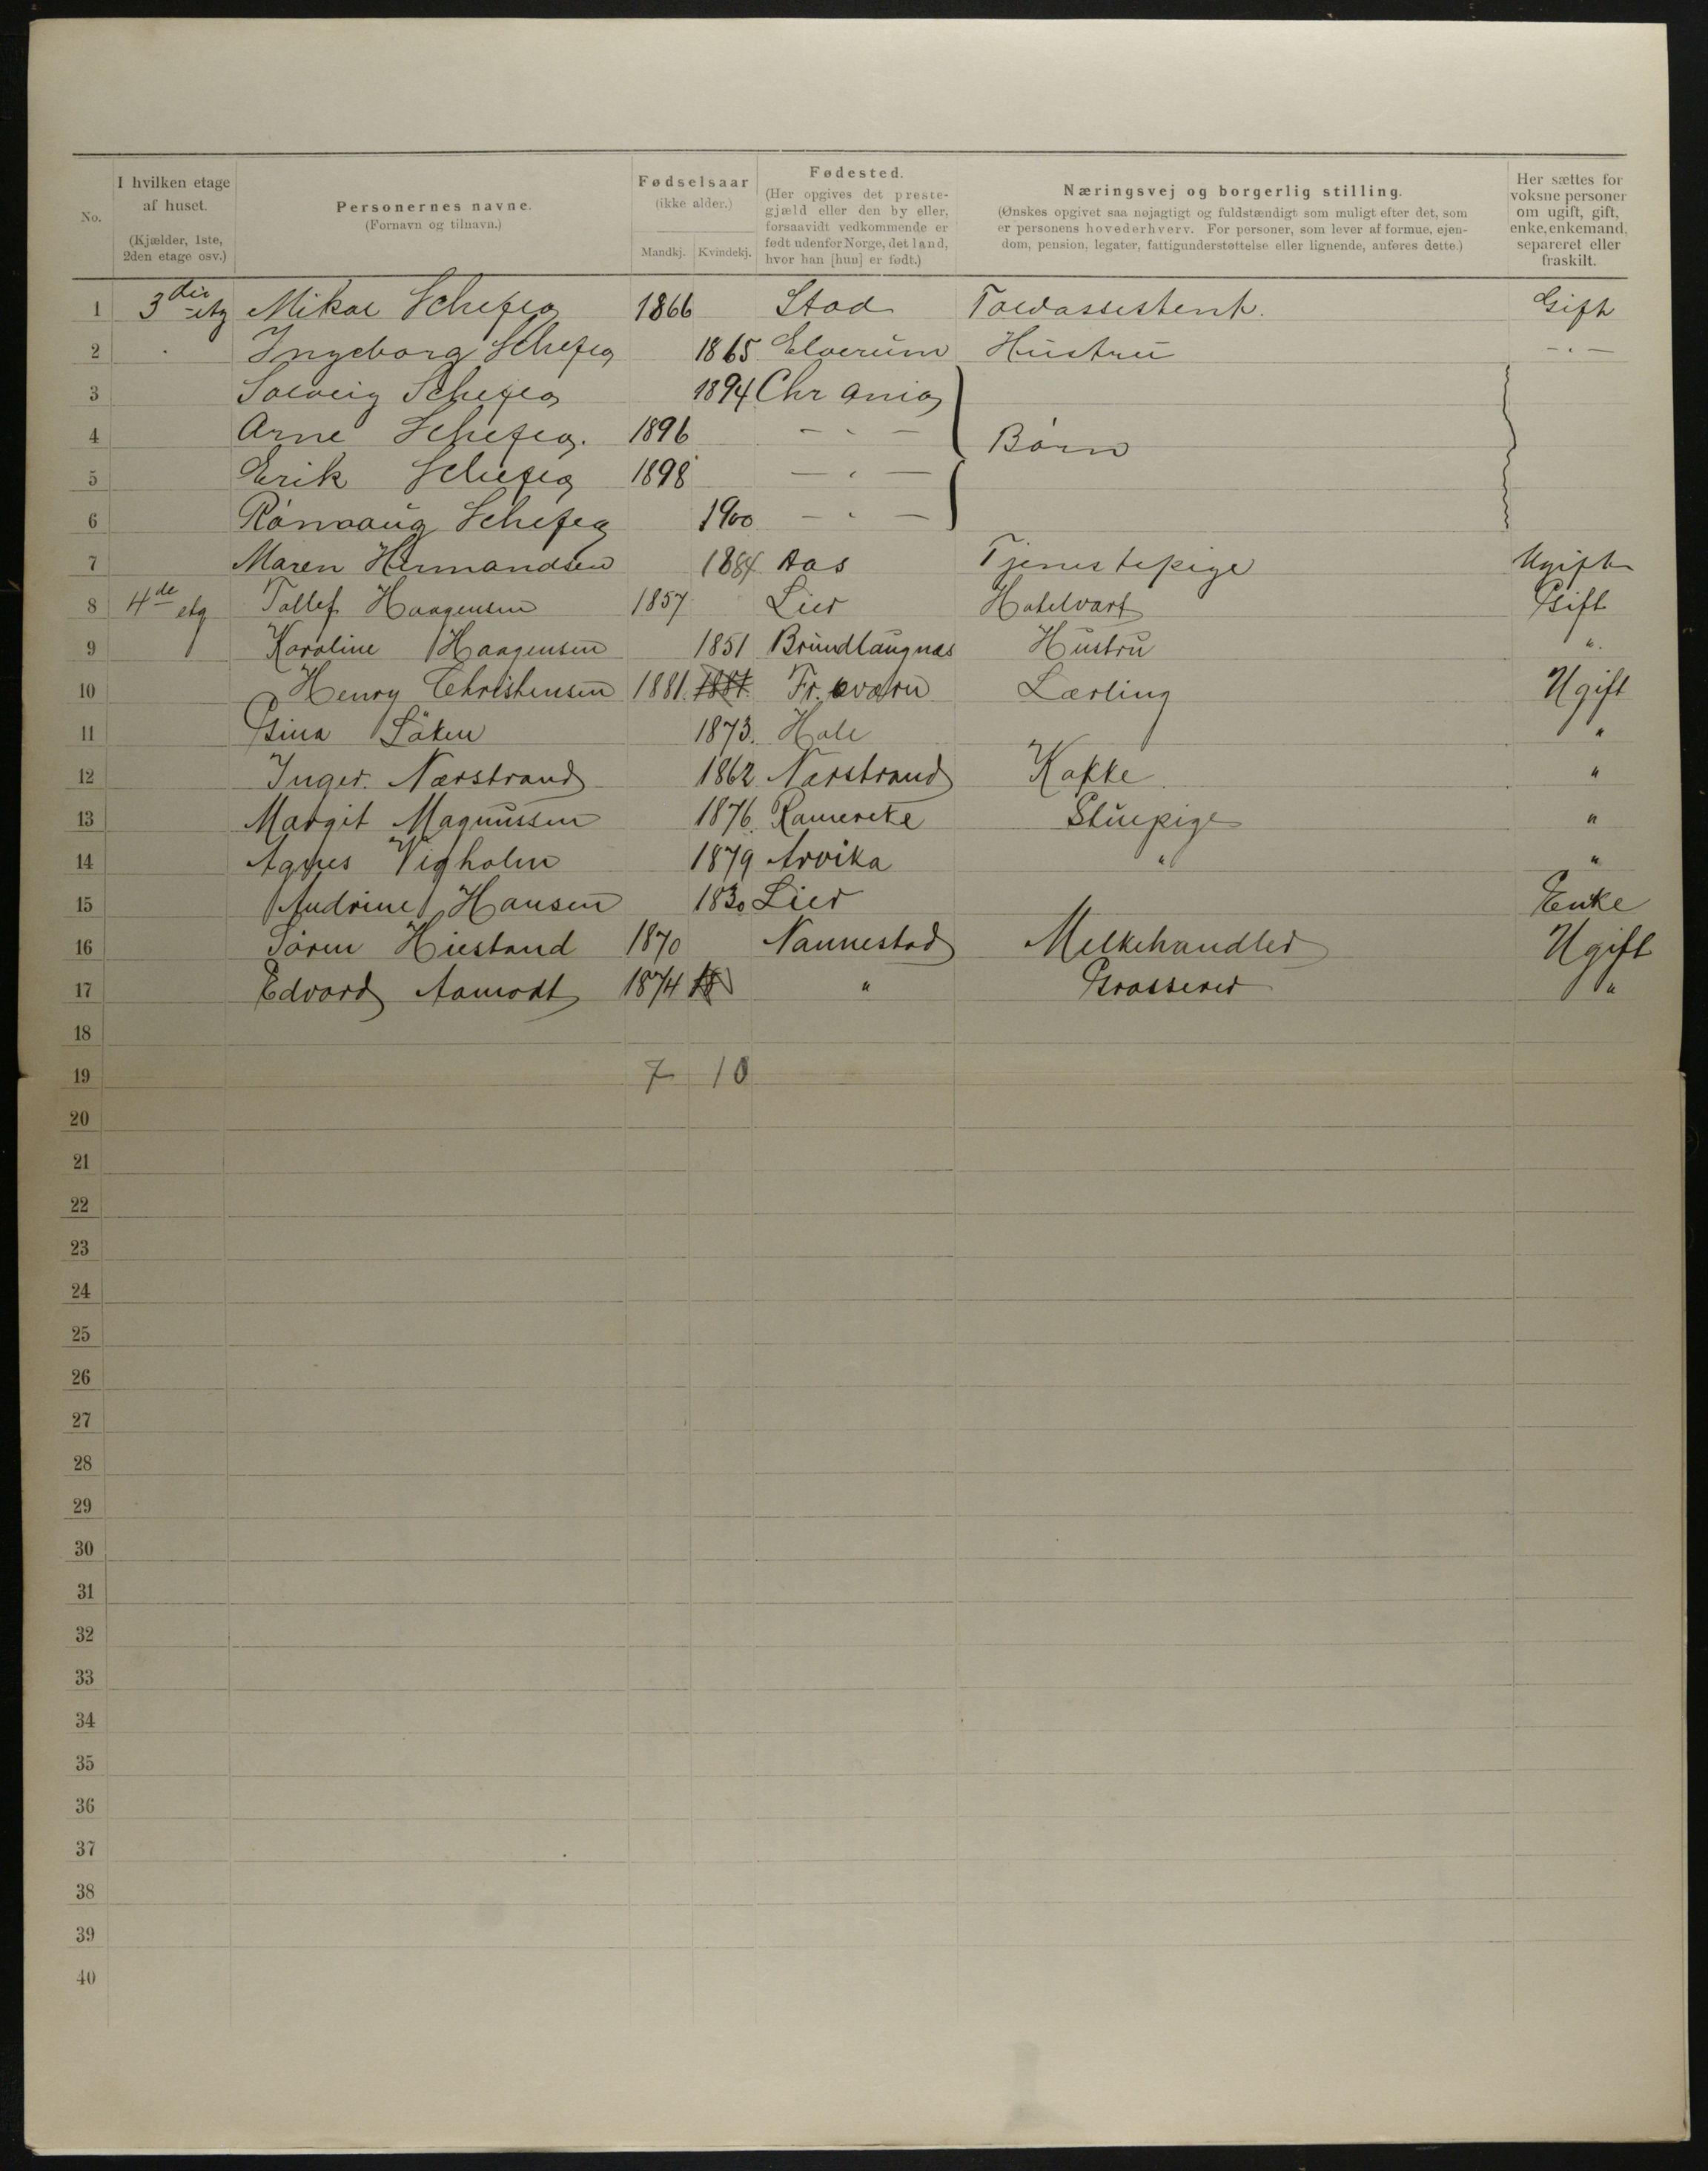 I hvilken etage af huset.
(Kjælder, 1ste, 2den etage osv.)
No.
Personernes navne.
(Fornavn og tilnavn.)
Fødselsaar
(ikke alder.)
Mandkj. Kvindekj.
Fødested.
(Her opgives det preste-
gjæld eller den by eller,
forsaavidt vedkommende er
født udenfor Norge, det land,
hvor han [hun] er født.)
Næringsvej og borgerlig stilling.
(Ønskes opgivet saa nøjagtigt og fuldstændigt som muligt efter det, som
er personens hovederhverv. For personer, som lever af formue, ejen-
dom, pension, legater, fattigunderstøttelse eller lignende, anføres dette.)
Her sættes for
voksne personer
om ugift, gift,
enke, enkemand,
separeret eller
fraskilt.
1 3die etg Mikal 1866 Stod Toldassistent. Gift
2 Ingeborg 1865 Elverum Hustru - " -
3 Solveig 1894 Chr ania
4 Arne 1896 - " - Börn
5 Erik 1898 - " -
6 1900 - " -
7 Maren Hermandsen 1884 Aas Tjenestepige Ugift
8 4de etg Tollef Haagensen 1857 Lier Hotelvært Gift
9 Karoline Haagensen 1851 Hustru "
10 Henry Christensen 1881. 1881. Fr. værn Lærling Ugift
11 Gina Löken 1873. Hole "
12 Inger Nærstrand 1862 Nærstrand Kokke "
13 Margit Magnussen 1876. Stuepige "
14 Agnes Vigholm 1879 Arvika " "
15 Andrine Hansen 1830 Lier Enke
16 Sören 1870 Nannestad Melkehandler Ugift
17 Edvard Aamodt 1874 18 " Grosserer "
18
19 7 10
20
21
22
23
24
25
26
27
28
29
30
31
32
33
34
35
36
37
38
39
40